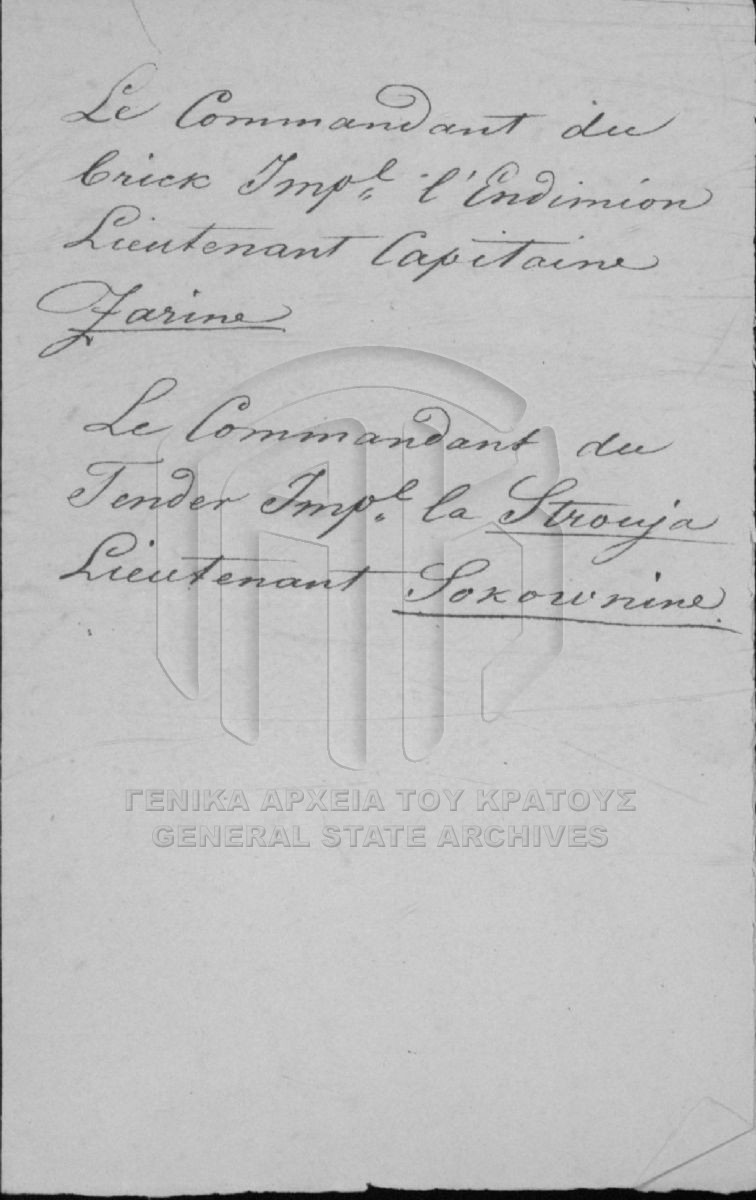 Le Commandant du
brick Imp.l l'Endimion
Lieutenant Capitaine
Zarine
Le Commandant du
Tender Imp.l la Strouja
Lieutenant Sokownine.
ΓΕΝΙΚΑ ΑΡΧΕΙΑ ΤΟΥ ΚΡΑΤΟΥΣ
GENERAL STATE ARCHIVES